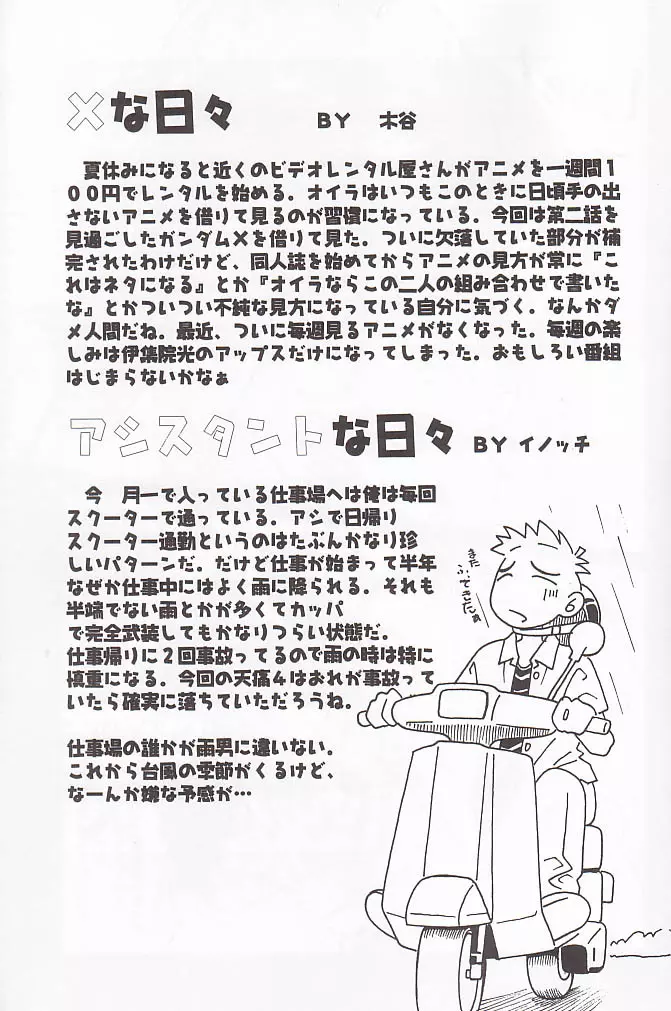 ×な日々 BY 木谷
夏休みになると近くのビデオレンタル屋さんがアニメを一週間1
00円でレンタルを始める。オイラはいつもこのときに日頃手の出
さないアニメを借りて見るのが習慣になっている。今回は第二話を
見過ごしたガンダム×を借りて見た。ついに欠落していた部分が補
完されたわけだけど、同人誌を始めてからアニメの見方が常に『こ
れはネタになる』とか『オイラならこの二人の組み合わせで書いた
な』とかついつい不純な見方になっている自分に気づく。なんかダ
メ人間だね。最近、ついに毎週見るアニメがなくなった。毎週の楽
しみは伊集院光のアップスだけになってしまった。おもしろい番組
はじまらないかなぁ
アシスタントな日々 BY イノッチ
今 月一で入っている仕事場へは俺は毎回
スクーターで通っている。アシで日帰り
スクーター通勤というのはたぶんかなり珍
しいパターンだ。だけど仕事が始まって半年
なぜか仕事中にはよく雨に降られる。それも
半端でない雨とかが多くてカッパ
で完全武装してもかなりつらい状態だ。
仕事帰りに2回事故ってるので雨の時は特に
慎重になる。今回の天痛4はおれが事故って
いたら確実に落ちていただろうね。
仕事場の誰かが雨男に違いない。
これから台風の季節がくるけど、
なーんか嫌な予感が…
また
ふってきたよぉ